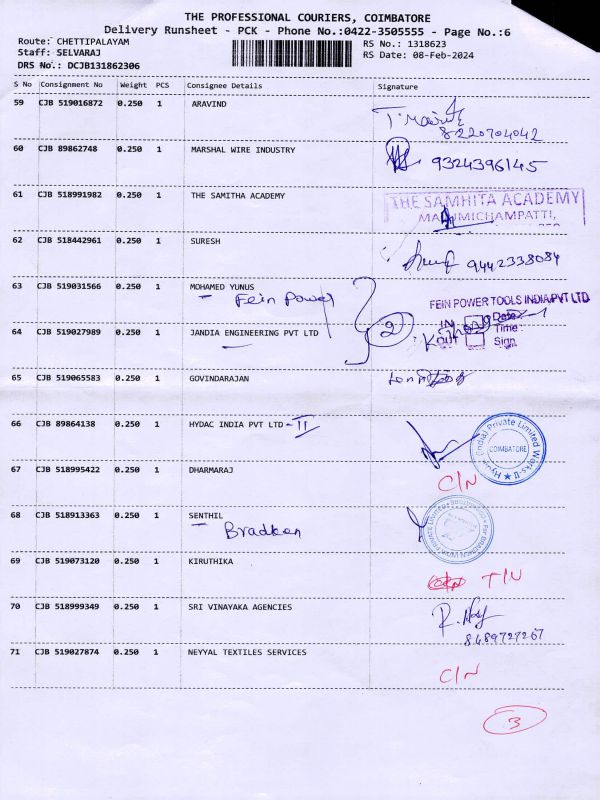 THE PROFESSIONAL COURIERS, COIMBATORE
Delivery Runsheet - PCK - Phone No.:0422-3505555 - Page No.:6
Route: CHETTIPALAYAM
RS No.: 1318623
Staff: SELVARAJ
RS Date: 08-Feb-2024
DRS No.: DCJB131862306
S No Consignment No Weight PCS Consignee Details Signature
59 CJB 519016872 0.250 1 ARAVIND
8220704042
60 CJB 89862748 0.250 1 MARSHAL WIRE INDUSTRY 9324396145
61 CJB 518991982 0.250 1 THE SAMITHA ACADEMY THE SAMHITA ACADEMY
MALUMICHAMPATTI,
62 CJB 518442961 0.250 1 SURESH
9442338084
63 CJB 519031566 0.250 1 MOHAMED YUNUS
Fein Power
FEIN POWER TOOLS INDIA PVT LTD
IN Date
64 CJB 519027989 0.250 1 JANDIA ENGINEERING PVT LTD 2 OUT Time :
Sign
65 CJB 519065583 0.250 1 GOVINDARAJAN
66 CJB 89864138 0.250 1 HYDAC INDIA PVT LTD - II
Hydac (India) Private Limited Works-II
COIMBATORE
67 CJB 518995422 0.250 1 DHARMARAJ C/N
68 CJB 518913363 0.250 1 SENTHIL
Bradken
69 CJB 519073120 0.250 1 KIRUTHIKA T/N
70 CJB 518999349 0.250 1 SRI VINAYAKA AGENCIES
8489727267
71 CJB 519027874 0.250 1 NEYYAL TEXTILES SERVICES C/N
3